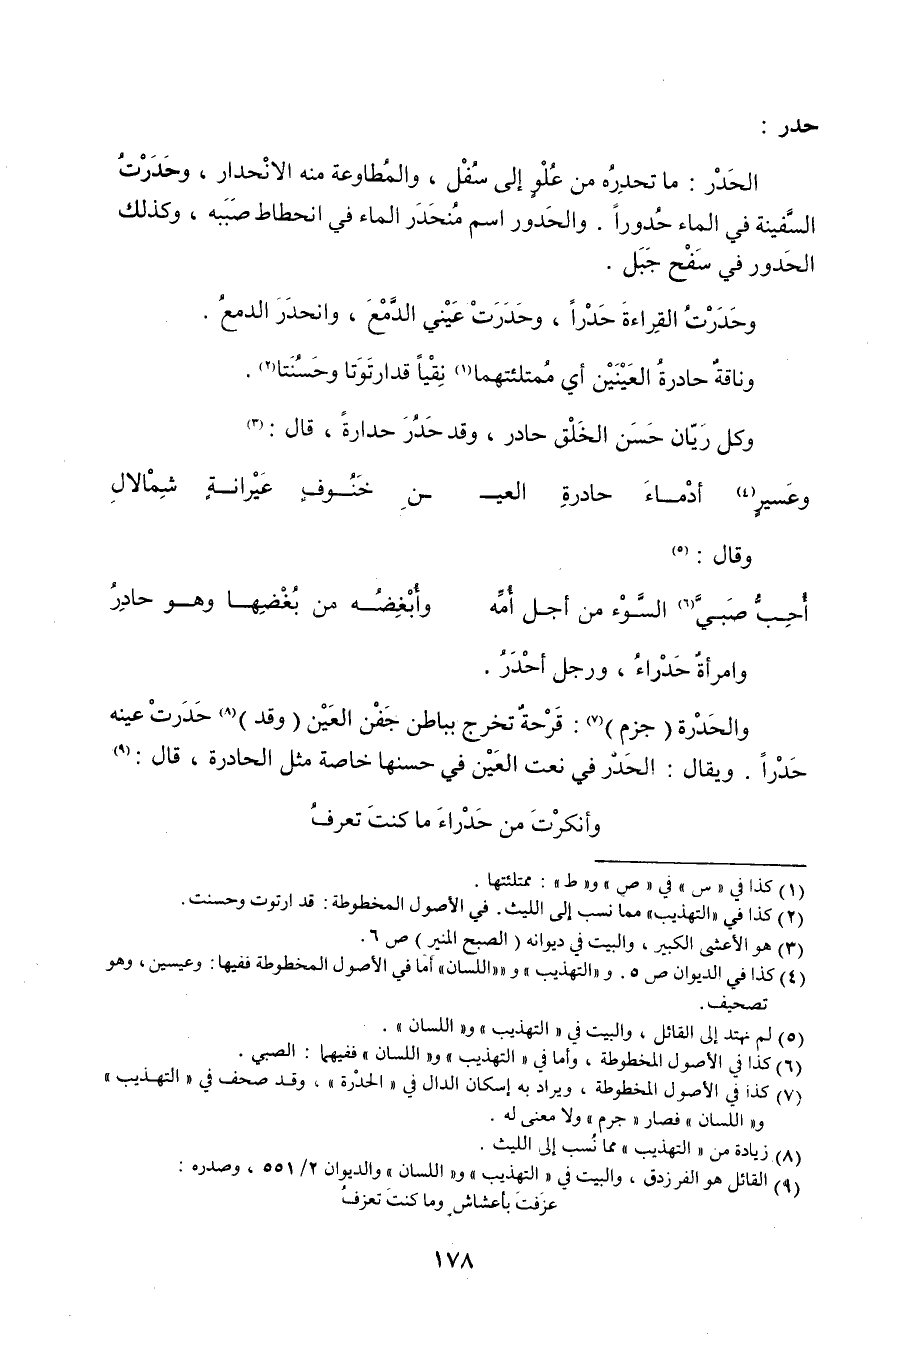 حدر :
الحَدْر : ما تحدِرُه من عُلْوٍ إلى سُفْل ، والمُطاوعة منه الانْحدار ، وحَدَرْتُ
السَّفينة في الماء حُدوراً . والحَدور اسم مُنحَدَر الماء في انحطاط صَبَبه ، وكذلك
الحَدور في سَفْح جَبَل .
وحَدَرْتُ القِراءةَ حَدْراً ، وحَدَرَتْ عَيْني الدَّمْعَ ، وانحدَرَ الدمعُ .
وناقةٌ حادرةُ العَيْنَيْن أي مُمتلئتهما(١) نِقْياً قدارتَوَتا وحَسُنَتا(٢) .
وكل رَيّان حَسَن الخَلْق حادر ، وقد حَدُرَ حدارةً ، قال : (٣)
وعَسيرٍ(٤) أدْمـاءَ حادرةِ العيـ ـنِ خَنُـوفٍ عَيْرانـةٍ شِمْلالِ
وقال : (٥)
أُحِبُّ صَبَيَّ(٦) السَّوْء من أجل أُمِّه وأُبْغِضُـه من بُغْضِهـا وهـو حادِرُ
وامرأةٌ حَدْراءُ ، ورجل أحْدَرُ .
والحَدْرة ( جزم )(٧) : قَرْحةٌ تخرج بباطن جَفْن العَيْن ( وقد )(٨) حَدَرتْ عينه
حَدْراً . ويقال : الحَدْر في نعت العَيْن في حسنها خاصة مثل الحادرة ، قال : (٩)
وأنكرْتَ من حَدْراءَ ما كنتَ تعرفُ
(١) كذا في « س » في « ص » و« ط » : ممتلئتها .
(٢) كذا في «التهذيب» مما نسب إلى الليث. في الأصول المخطوطة: قد ارتوت وحسنت.
(٣) هو الأعشى الكبير ، والبيت في ديوانه ( الصبح المنير ) ص ٦.
(٤) كذا في الديوان ص ٥. و «التهذيب » و ««اللسان» أما في الأصول المخطوطة ففيها: وعيسين، وهو
تصحيف.
(٥) لم نهتد إلى القائل ، والبيت في « التهذيب » و« اللسان » .
(٦) كذا في الأصول المخطوطة ، وأما في « التهذيب » و« اللسان » ففيهما : الصبي .
(٧) كذا في الأصول المخطوطة ، ويراد به إسكان الدال في « الحدْرة » ، وقـد صحف في « التهـذيب »
و« اللسان » فصار « جرم » ولا معنى له .
(٨) زيادة من « التهذيب » مما نُسب إلى الليث .
(٩) القائل هو الفرزدق ، والبيت في « التهذيب » و« اللسان » والديوان ٢/ ٥٥١ ، وصدره :
عزَفتَ بأعشاشٍ وما كنتَ تعزفُ
١٧٨